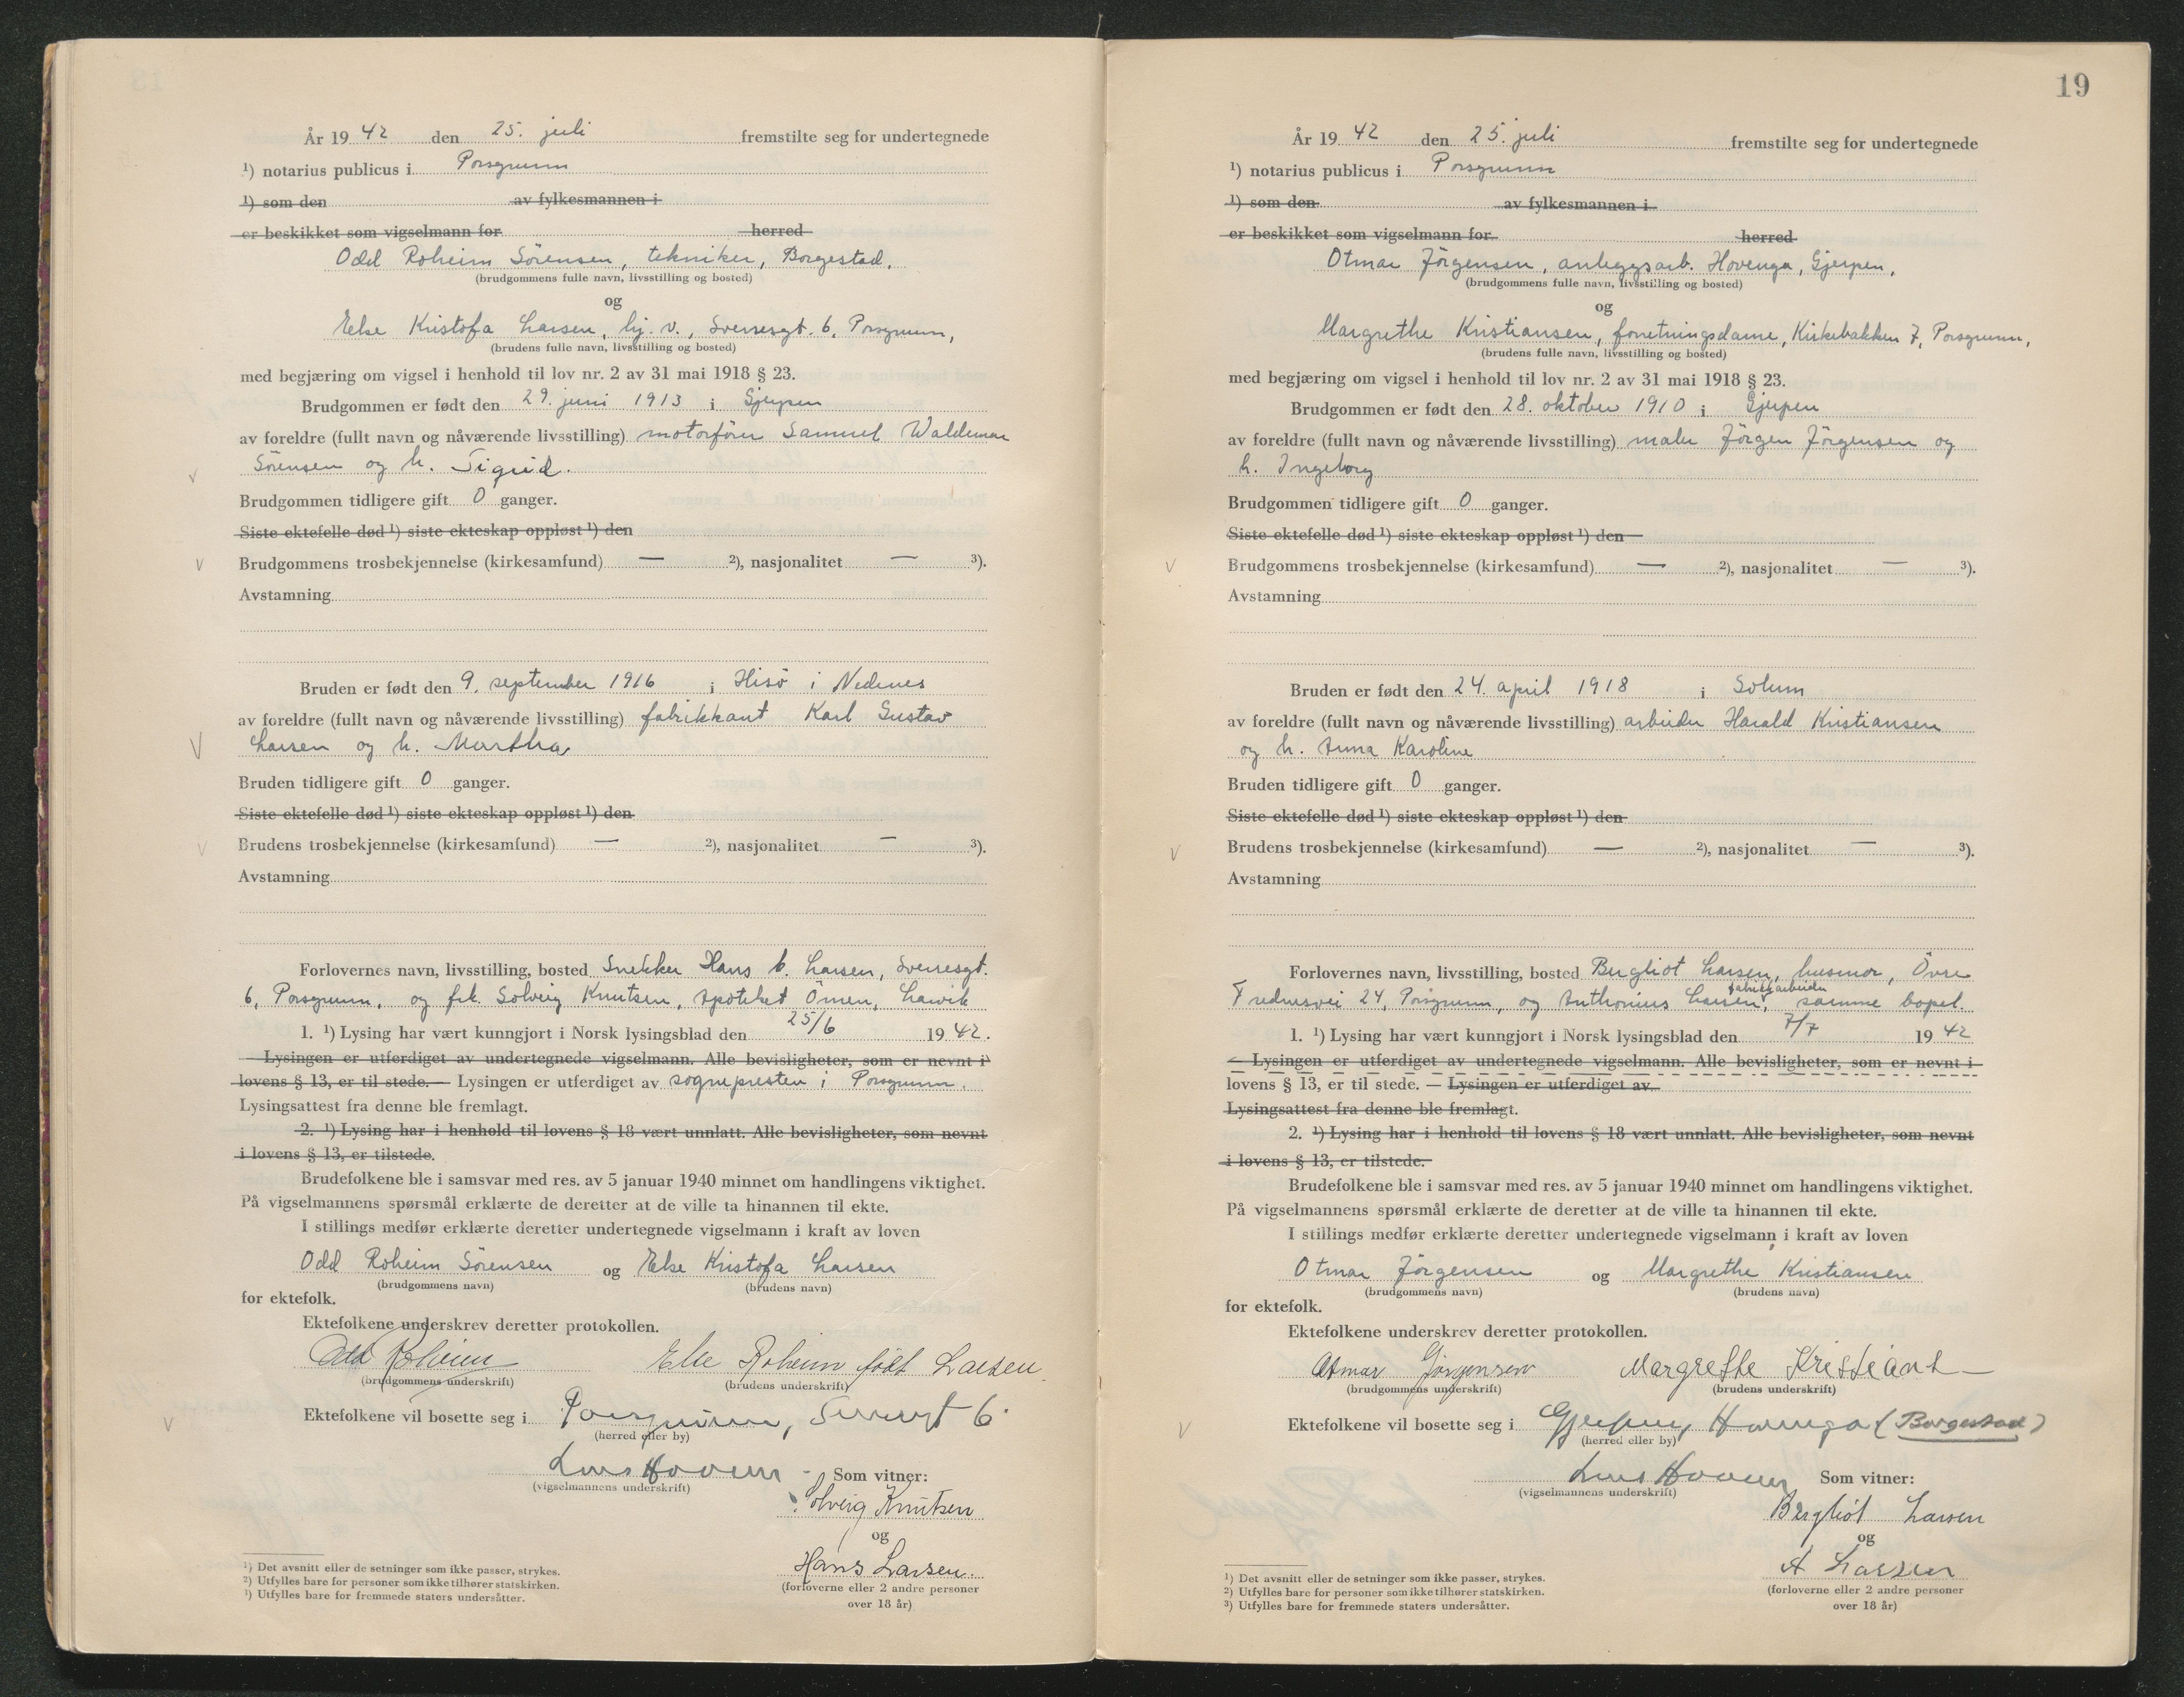 År 19 42 den 25. juli fremstilte seg for undertegnede
¹) notarius publicus i Porsgrunn
¹) som den av fylkesmannen i
er beskikket som vigselmann for herred
Odd Roheim Sörensen, tekniker, Borgestad.
(brudgommens fulle navn, livsstilling og bosted)
og
Else Kristofa Larsen, hj. v., Sverresgt. 6, Porsgrunn,
(brudens fulle navn, livsstilling og bosted)
med begjæring om vigsel i henhold til lov nr. 2 av 31 mai 1918 § 23.
Brudgommen er født den 29. juni 1913 i Gjerpen
av foreldre (fullt navn og nåværende livsstilling) motorförer Samuel Waldemar
Sörensen og h. Sigrid.
Brudgommen tidligere gift 0 ganger.
Siste ektefelle død ¹) siste ekteskap oppløst ¹) den
Brudgommens trosbekjennelse (kirkesamfund) — ²), nasjonalitet — ³).
Avstamning
Bruden er født den 9. september 1916 i Hisö i Nedenes
av foreldre (fullt navn og nåværende livsstilling) fabrikkant Karl Gustav
Larsen og h. Martha
Bruden tidligere gift 0 ganger.
Siste ektefelle død ¹) siste ekteskap oppløst ¹) den
Brudens trosbekjennelse (kirkesamfund) — ²), nasjonalitet — ³).
Avstamning
Forlovernes navn, livsstilling, bosted Snekker Hans Larsen, Sverresgt.
6, Porsgrunn, og frk. Solveig Knutsen, Apoteket Ömen, Larvik
1. ¹) Lysing har vært kunngjort i Norsk lysingsblad den 25/6 19 42.
— Lysingen er utferdiget av undertegnede vigselmann. Alle bevisligheter, som er nevnt i
lovens § 13, er til stede. — Lysingen er utferdiget av sognepresten i Porsgrunn.
Lysingsattest fra denne ble fremlagt.
2. ¹) Lysing har i henhold til lovens § 18 vært unnlatt. Alle bevisligheter, som nevnt
i lovens § 13, er tilstede.
Brudefolkene ble i samsvar med res. av 5 januar 1940 minnet om handlingens viktighet.
På vigselmannens spørsmål erklærte de deretter at de ville ta hinannen til ekte.
I stillings medfør erklærte deretter undertegnede vigselmann i kraft av loven
Odd Roheim Sörensen og Else Kristofa Larsen
(brudgommens navn) (brudens navn)
for ektefolk.
Ektefolkene underskrev deretter protokollen.
Odd Roheim Else Roheim født Larsen.
(brudgommens underskrift) (brudens underskrift)
Ektefolkene vil bosette seg i Porsgrunn, Sverresgt 6.
(herred eller by)
(vigselmannens underskrift) Som vitner:
Solveig Knutsen
og
Hans Larsen.
(forloverne eller 2 andre personer
over 18 år)
¹) Det avsnitt eller de setninger som ikke passer, strykes.
²) Utfylles bare for personer som ikke tilhører statskirken.
¹) Utfylles bare for fremmede staters undersåtter.
19
År 19 42 den 25. juli fremstilte seg for undertegnede
¹) notarius publicus i Porsgrunn
¹) som den av fylkesmannen i
er beskikket som vigselmann for herred
Otmar Jörgensen, anleggsarb. Hovenga, Gjerpen,
(brudgommens fulle navn, livsstilling og bosted)
og
Margrethe Kristiansen, forretningsdame, Kirkebakken 7, Porsgrunn,
(brudens fulle navn, livsstilling og bosted)
med begjæring om vigsel i henhold til lov nr. 2 av 31 mai 1918 § 23.
Brudgommen er født den 28. oktober 1910 i Gjerpen
av foreldre (fullt navn og nåværende livsstilling) maler Jörgen Jörgensen og
h. Ingeborg
Brudgommen tidligere gift 0 ganger.
Siste ektefelle død ¹) siste ekteskap oppløst ¹) den
Brudgommens trosbekjennelse (kirkesamfund) — ²), nasjonalitet — ³).
Avstamning
Bruden er født den 24. april 1918 i Solum
av foreldre (fullt navn og nåværende livsstilling) arbeider Harald Kristiansen
og h. Anna Karoline
Bruden tidligere gift 0 ganger.
Siste ektefelle død ¹) siste ekteskap oppløst ¹) den
Brudens trosbekjennelse (kirkesamfund) — ²), nasjonalitet — ³).
Avstamning
Forlovernes navn, livsstilling, bosted Bergliot Larsen, husmor, Övre
Frednesvei 24, Porsgrunn, og Anthonius Larsen, fabrikkarbeider samme bopel.
1. ¹) Lysing har vært kunngjort i Norsk lysingsblad den 7/7 19 42
— Lysingen er utferdiget av undertegnede vigselmann. Alle bevisligheter, som er nevnt i
lovens § 13, er til stede. — Lysingen er utferdiget av
Lysingsattest fra denne ble fremlagt.
2. ¹) Lysing har i henhold til lovens § 18 vært unnlatt. Alle bevisligheter, som nevnt
i lovens § 13, er tilstede.
Brudefolkene ble i samsvar med res. av 5 januar 1940 minnet om handlingens viktighet.
På vigselmannens spørsmål erklærte de deretter at de ville ta hinannen til ekte.
I stillings medfør erklærte deretter undertegnede vigselmann i kraft av loven
Otmar Jörgensen og Margrethe Kristiansen
(brudgommens navn) (brudens navn)
for ektefolk.
Ektefolkene underskrev deretter protokollen.
Otmar Jörgensen Margrethe
(brudgommens underskrift) (brudens underskrift)
Ektefolkene vil bosette seg i Gjerpen, Hovenga (Borgestad)
(herred eller by)
(vigselmannens underskrift) Som vitner:
Bergliot Larsen
og
A Larsen
(forloverne eller 2 andre personer
over 18 år)
¹) Det avsnitt eller de setninger som ikke passer, strykes.
²) Utfylles bare for personer som ikke tilhører statskirken.
³) Utfylles bare for fremmede staters undersåtter.